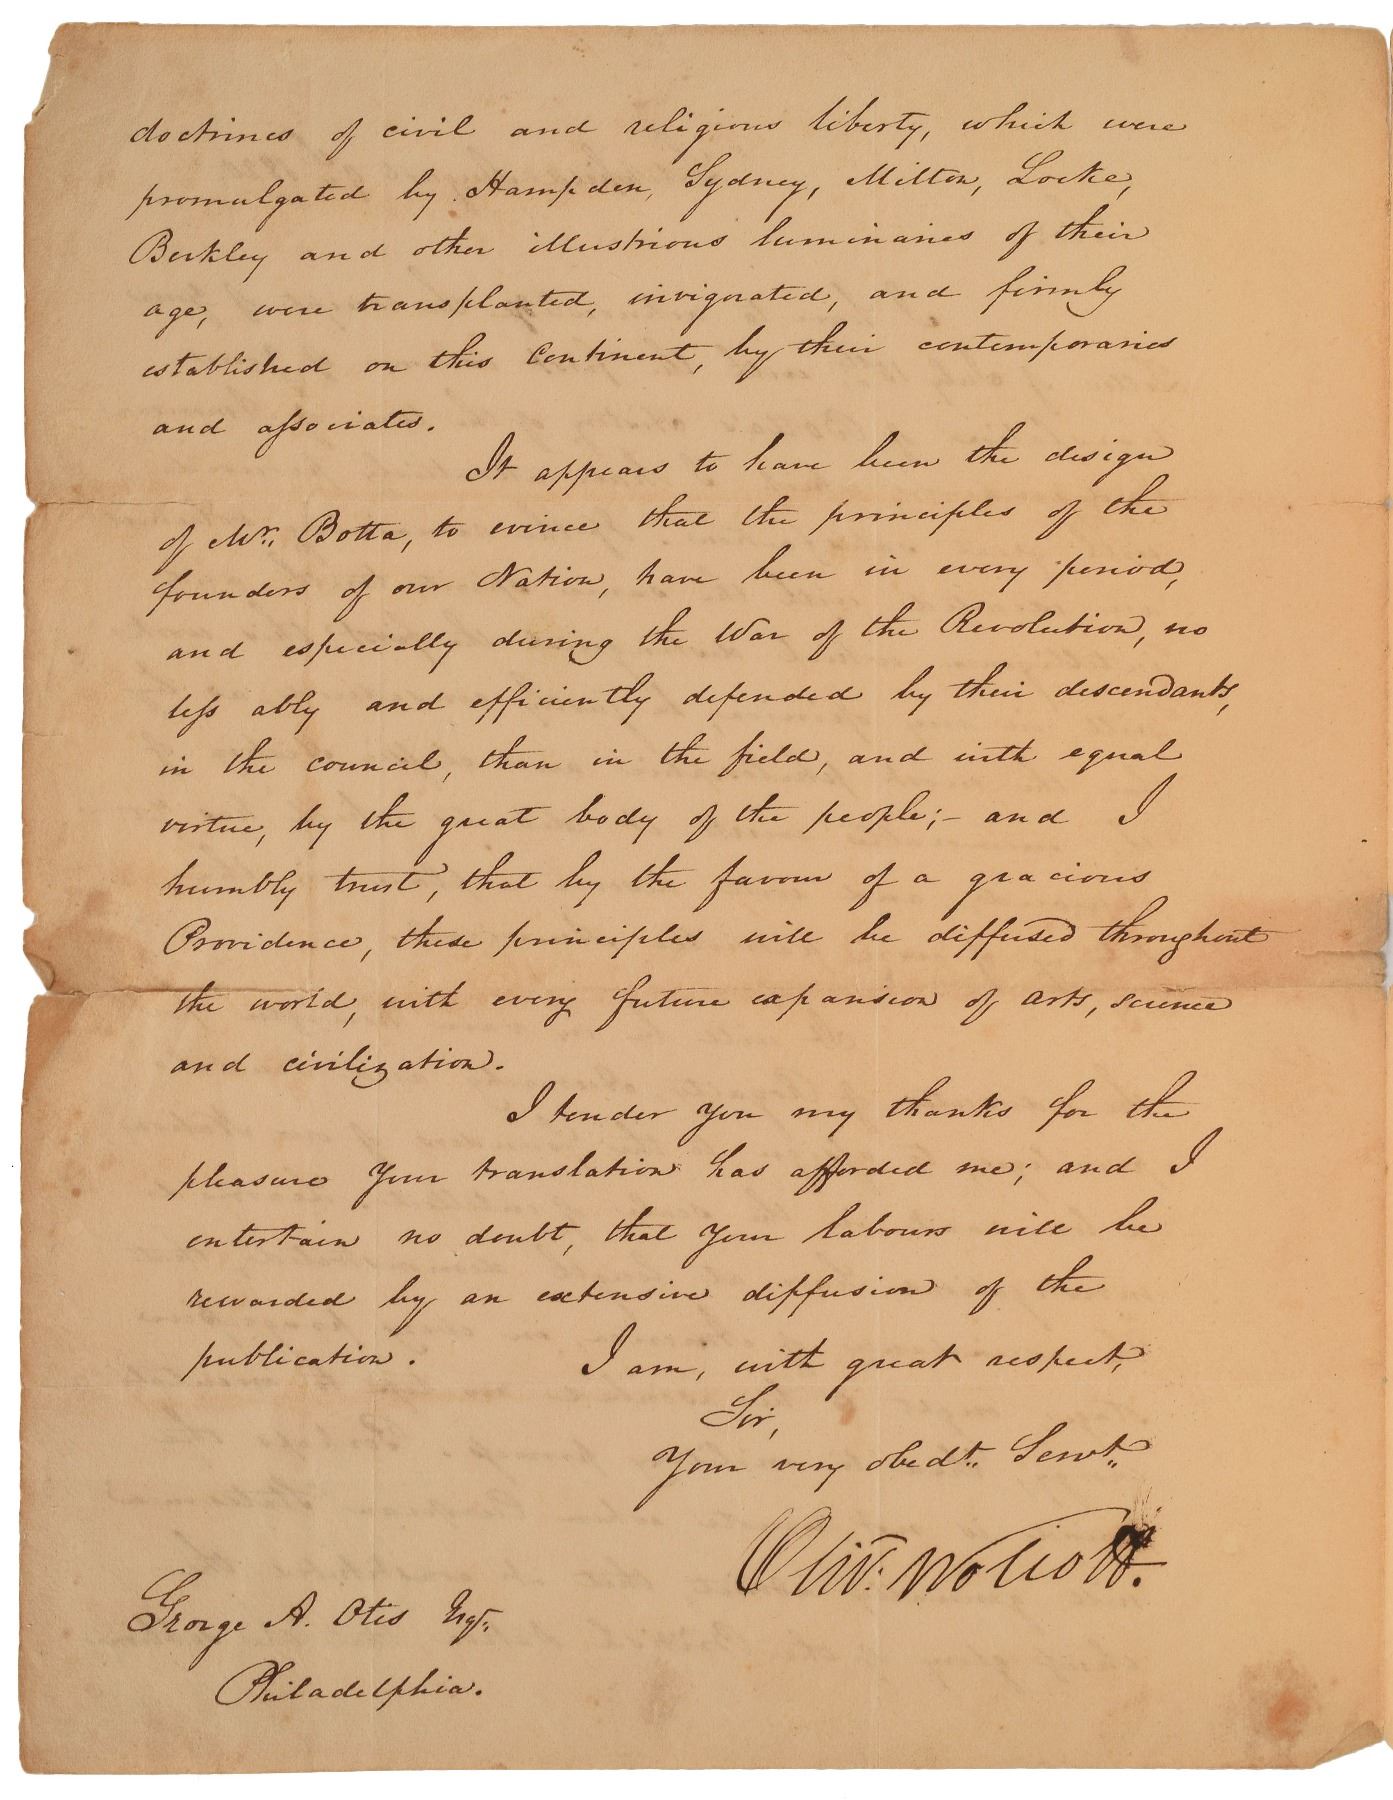 doctrines of civil and religious liberty, which were
promulgated by Hampden, Sydney, Milton, Locke,
Berkley and other illustrious luminaries of their
age, were transplanted, invigorated, and firmly
established on this Continent, by their contemporaries
and associates.
It appears to have been the design
of Mr. Botta, to evince that the principles of the
founders of our Nation, have been in every period,
and especially during the War of the Revolution, no
less ably and efficiently defended by their descendants,
in the council, than in the field, and with equal
virtue, by the great body of the people;- and I
humbly trust, that by the favour of a gracious
Providence, these principles will be diffused throughout
the world, with every future expansion of arts, science
and civilization.
I tender you my thanks for the
pleasure your translation has afforded me; and I
entertain no doubt, that your labours will be
rewarded by an extensive diffusion of the
publication. I am, with great respect,
Sir,
Your very obedt. Servt.
Oliv: Wolcott.
George A. Otis Esqr.
Philadelphia.